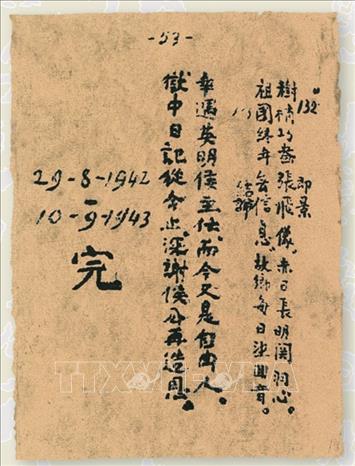 -53-
132
即景
樹梢巧畫張飛像，赤日長明関羽心。
祖国終年無信息，故鄉每日望回音。
結論
幸遇英明侯主任，而今又是自由人。
獄中日記從今止，深謝侯公再造恩。
29-8-1942
-
10-9-1943
完
TTXVN